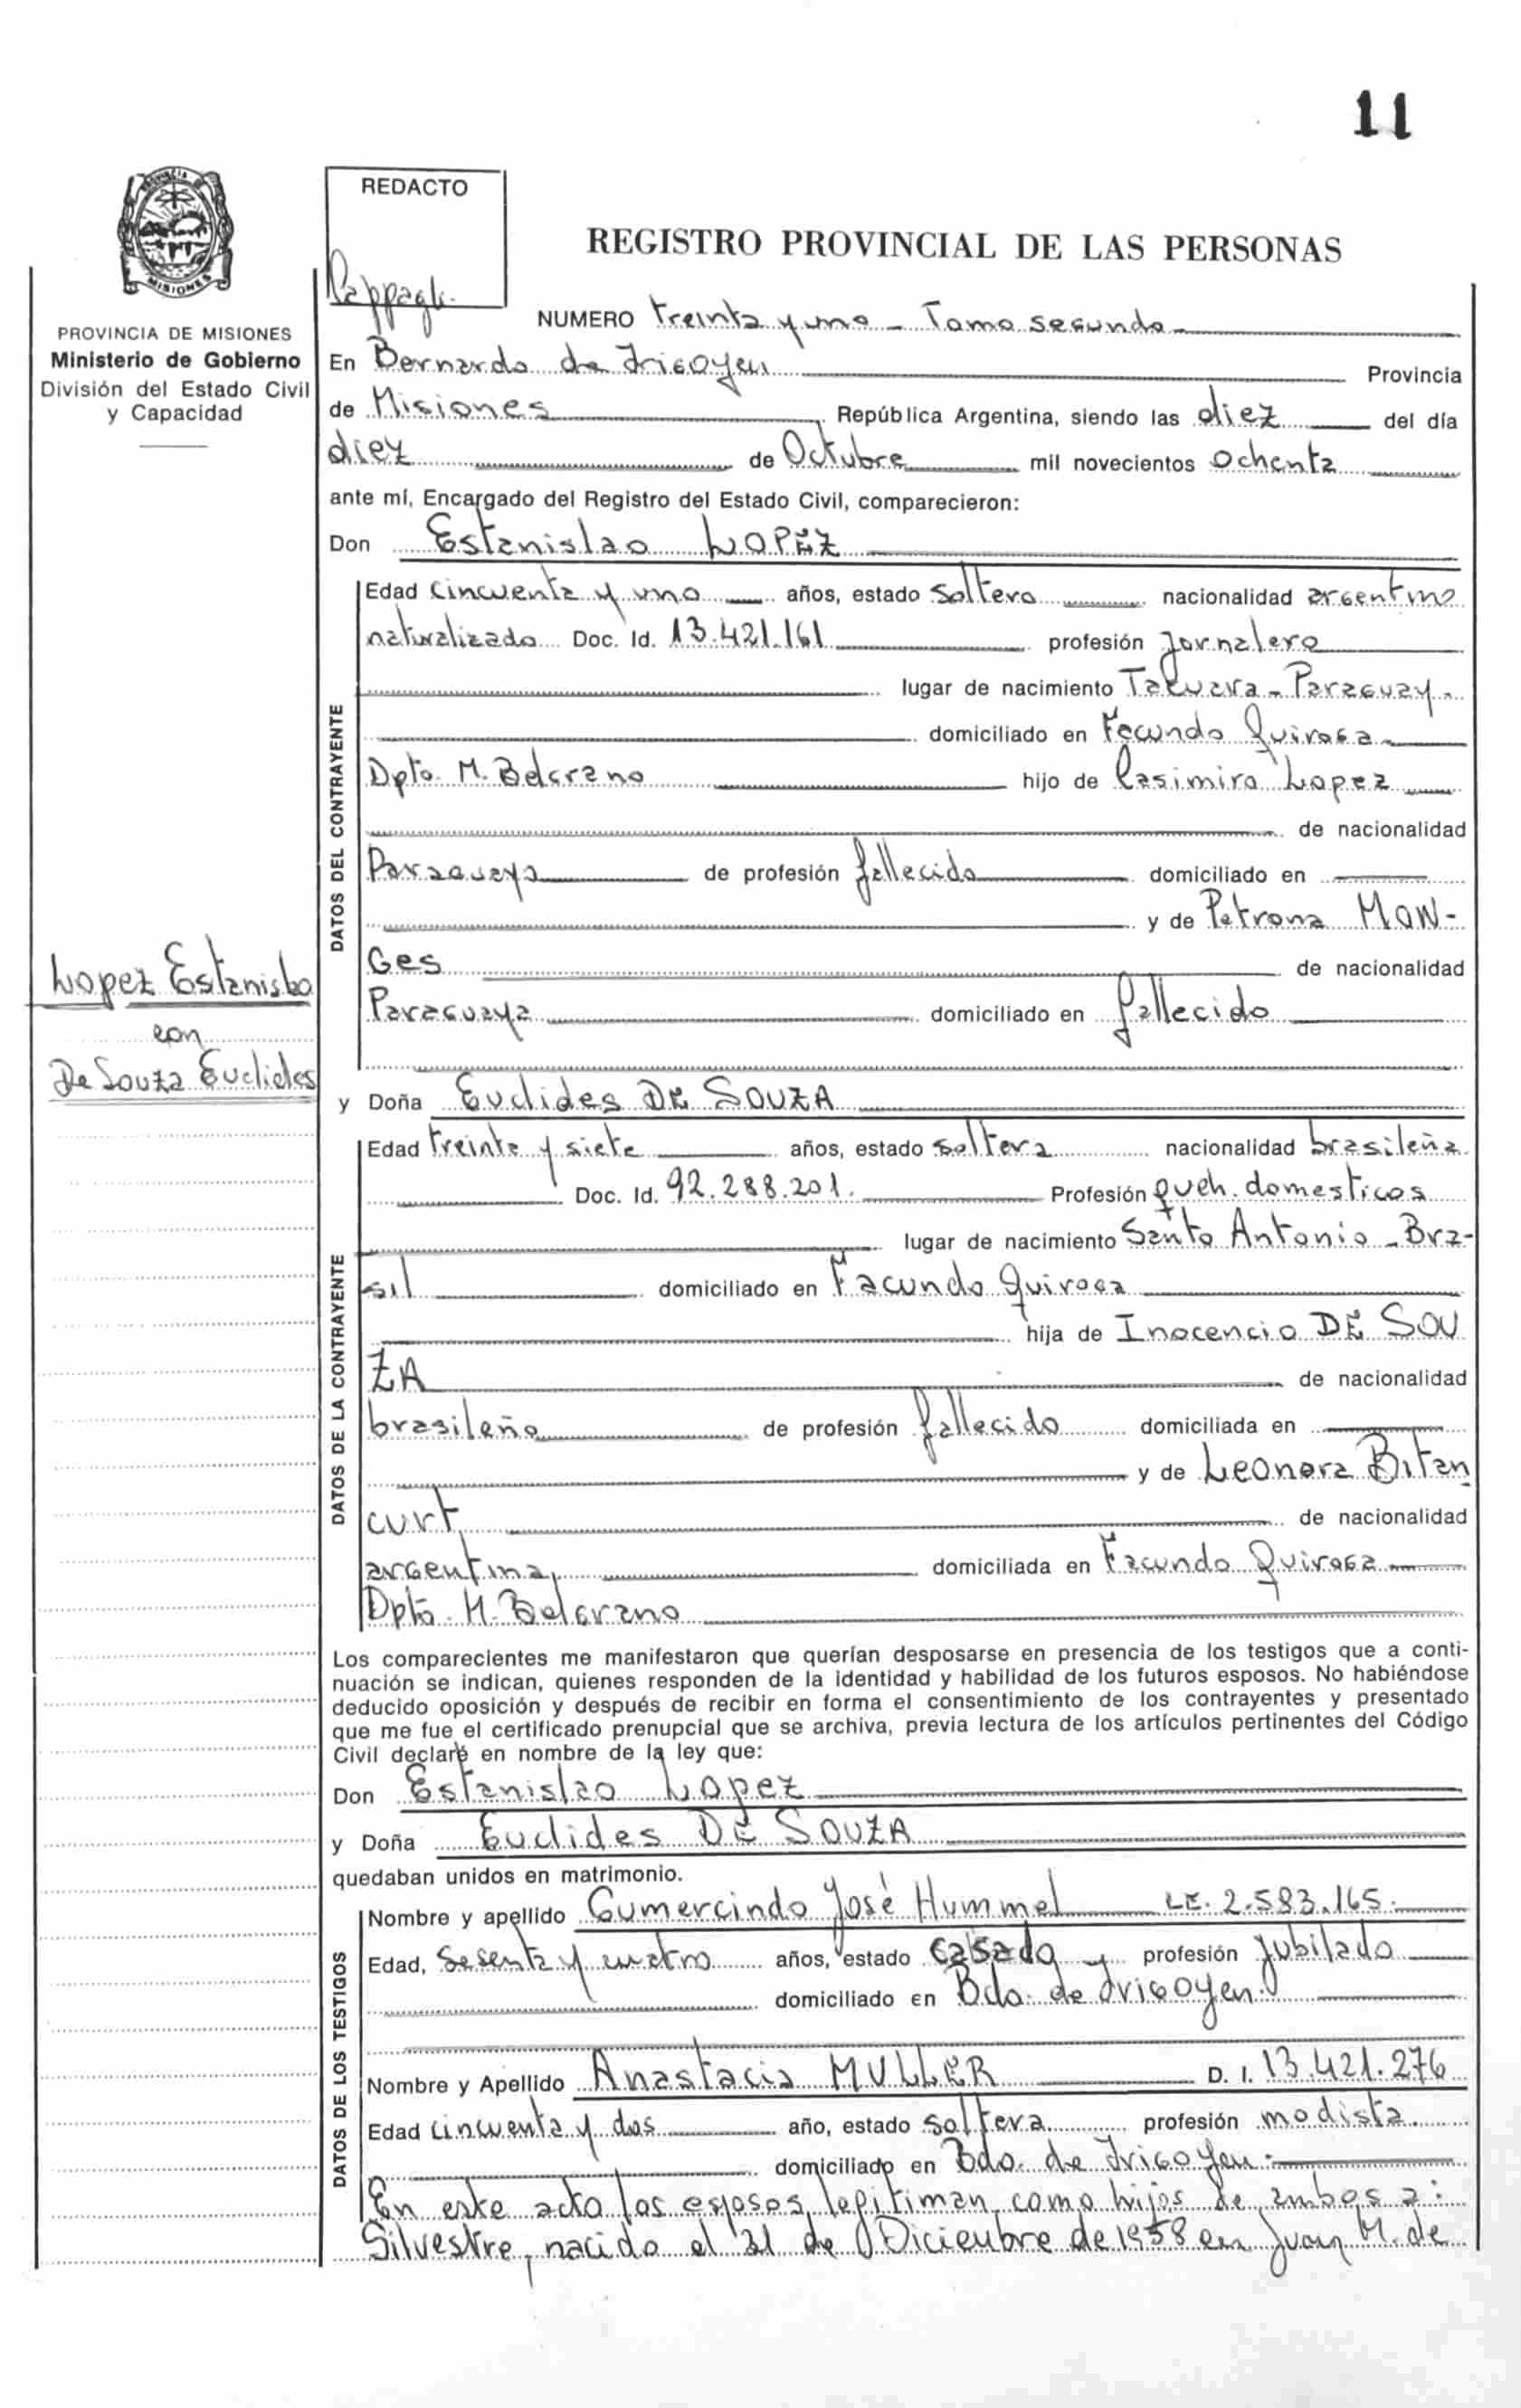 11
REDACTO
REGISTRO PROVINCIAL DE LAS PERSONAS
MISIONES
PROVINCIA DE MISIONES
Ministerio de Gobierno
División del Estado Civil
y Capacidad
NUMERO treinta y uno - Tomo segundo
En Bernardo de Irigoyen Provincia
de Misiones República Argentina, siendo las diez del día
diez de Octubre mil novecientos ochenta
ante mí, Encargado del Registro del Estado Civil, comparecieron:
Don Estanislao LOPEZ
DATOS DEL CONTRAYENTE
Edad cincuenta y uno años, estado soltero nacionalidad argentino
naturalizado Doc. Id. 13.421.161 profesión Jornalero
lugar de nacimiento Takuara - Paraguay.
domiciliado en Facundo Quiroga
Dpto. M. Belgrano hijo de Casimiro Lopez
de nacionalidad
Paraguayo de profesión fallecido domiciliado en
y de Petrona MON-
Ges de nacionalidad
Paraguaya domiciliado en fallecido
Lopez Estanislao
con
De Souza Euclides
y Doña Euclides DE SOUZA
DATOS DE LA CONTRAYENTE
Edad treinta y siete años, estado soltera nacionalidad brasileña
Doc. Id. 92.288.201. Profesión queh. domesticos
lugar de nacimiento Santo Antonio - Bra-
sil domiciliado en Facundo Quiroga
hija de Inocencio DE SOU
ZA de nacionalidad
brasileño de profesión fallecido domiciliada en
y de Leonora Bitan
curt, de nacionalidad
argentina, domiciliada en Facundo Quiroga
Dpto. M. Belgrano
Los comparecientes me manifestaron que querían desposarse en presencia de los testigos que a conti-
nuación se indican, quienes responden de la identidad y habilidad de los futuros esposos. No habiéndose
deducido oposición y después de recibir en forma el consentimiento de los contrayentes y presentado
que me fue el certificado prenupcial que se archiva, previa lectura de los artículos pertinentes del Código
Civil declaré en nombre de la ley que:
Don Estanislao Lopez
y Doña Euclides DE SOUZA
quedaban unidos en matrimonio.
DATOS DE LOS TESTIGOS
Nombre y apellido Gumercindo José Hummel LE. 2.583.165.
Edad, Sesenta y cuatro años, estado casado profesión Jubilado
domiciliado en Bdo. de Irigoyen
Nombre y Apellido Anastacia MULLER D. I. 13.421.276
Edad cincuenta y dos año, estado soltera profesión modista
domiciliado en Bdo. de Irigoyen.
En este acto los esposos legitiman como hijos de ambos a:
Silvestre, nacido el 31 de Diciembre de 1958 en Juan M. de